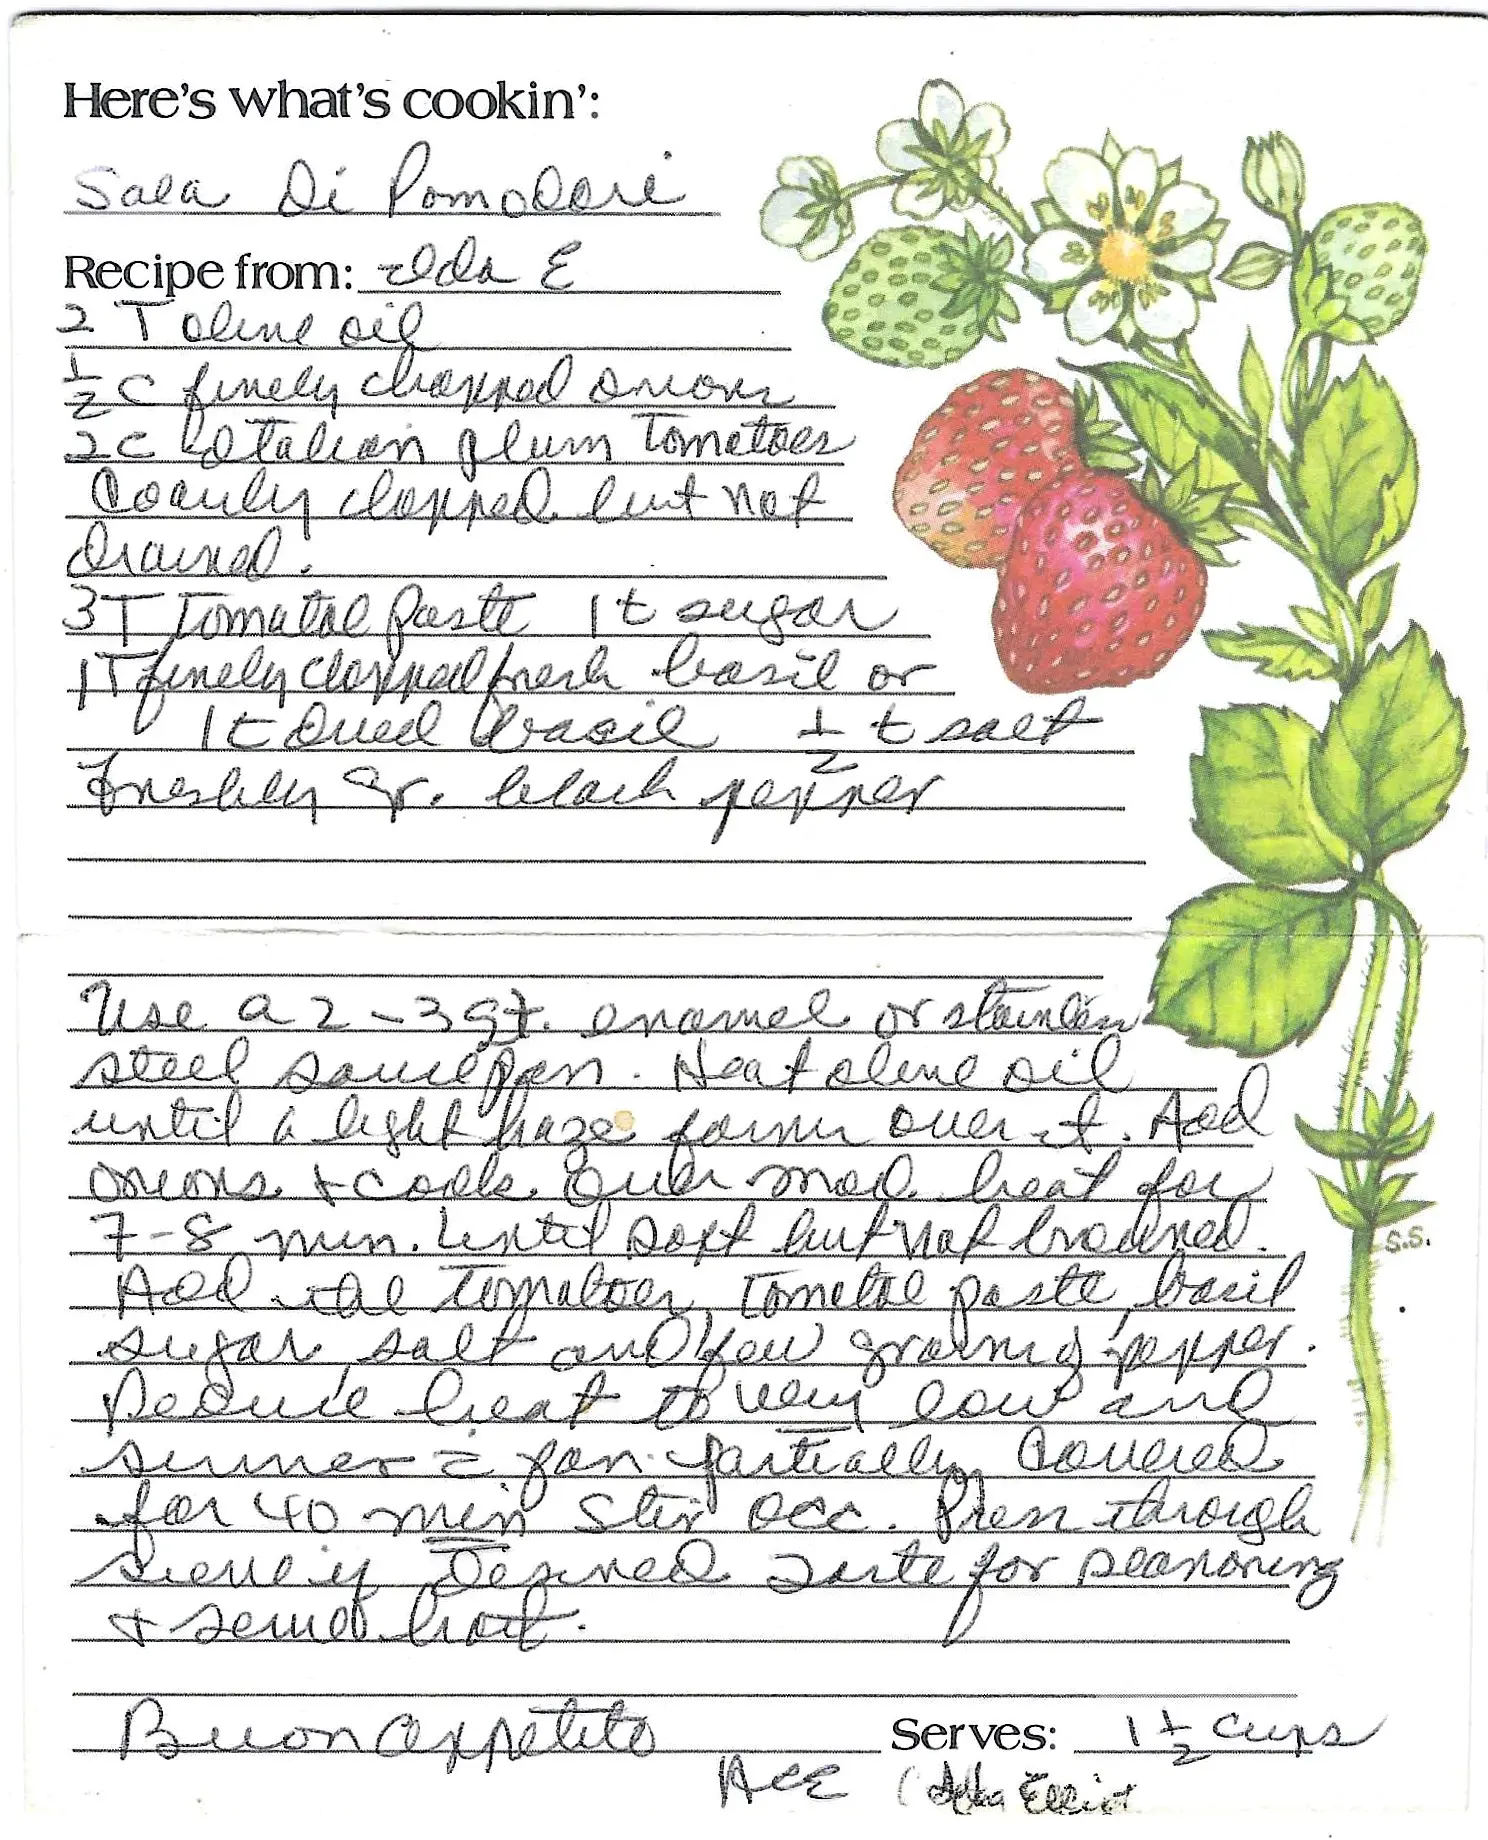 Here's what's cookin':
Sala Di Pomodori
Recipe from: Ida E
2 T olive oil
1/2 c finely chopped onions
2 c Italian plum Tomatoes
Coarsly chopped but not
drained.
3 T Tomatoe Paste 1 t sugar
1 T finely chopped fresh basil or
1 t dried basil 1/2 t salt
Freshly gr. black pepper
Use a 2-3 qt. enamel or stainless
steel sauce pan. Heat olive oil
until a light haze forms over it. Add
onions + cook over mod heat for
7-8 min. Until soft but not browned.
Add the Tomatoes, Tomatoe paste, basil
sugar, salt and few grains of pepper.
Reduce heat to very low and
simmer c̄ pan partially covered
for 40 min Stir occ. Press through
sieve if desired Taste for seasoning
+ serve hot.
Buon appetito Serves: 1 1/2 cups
Elliot
S.S.